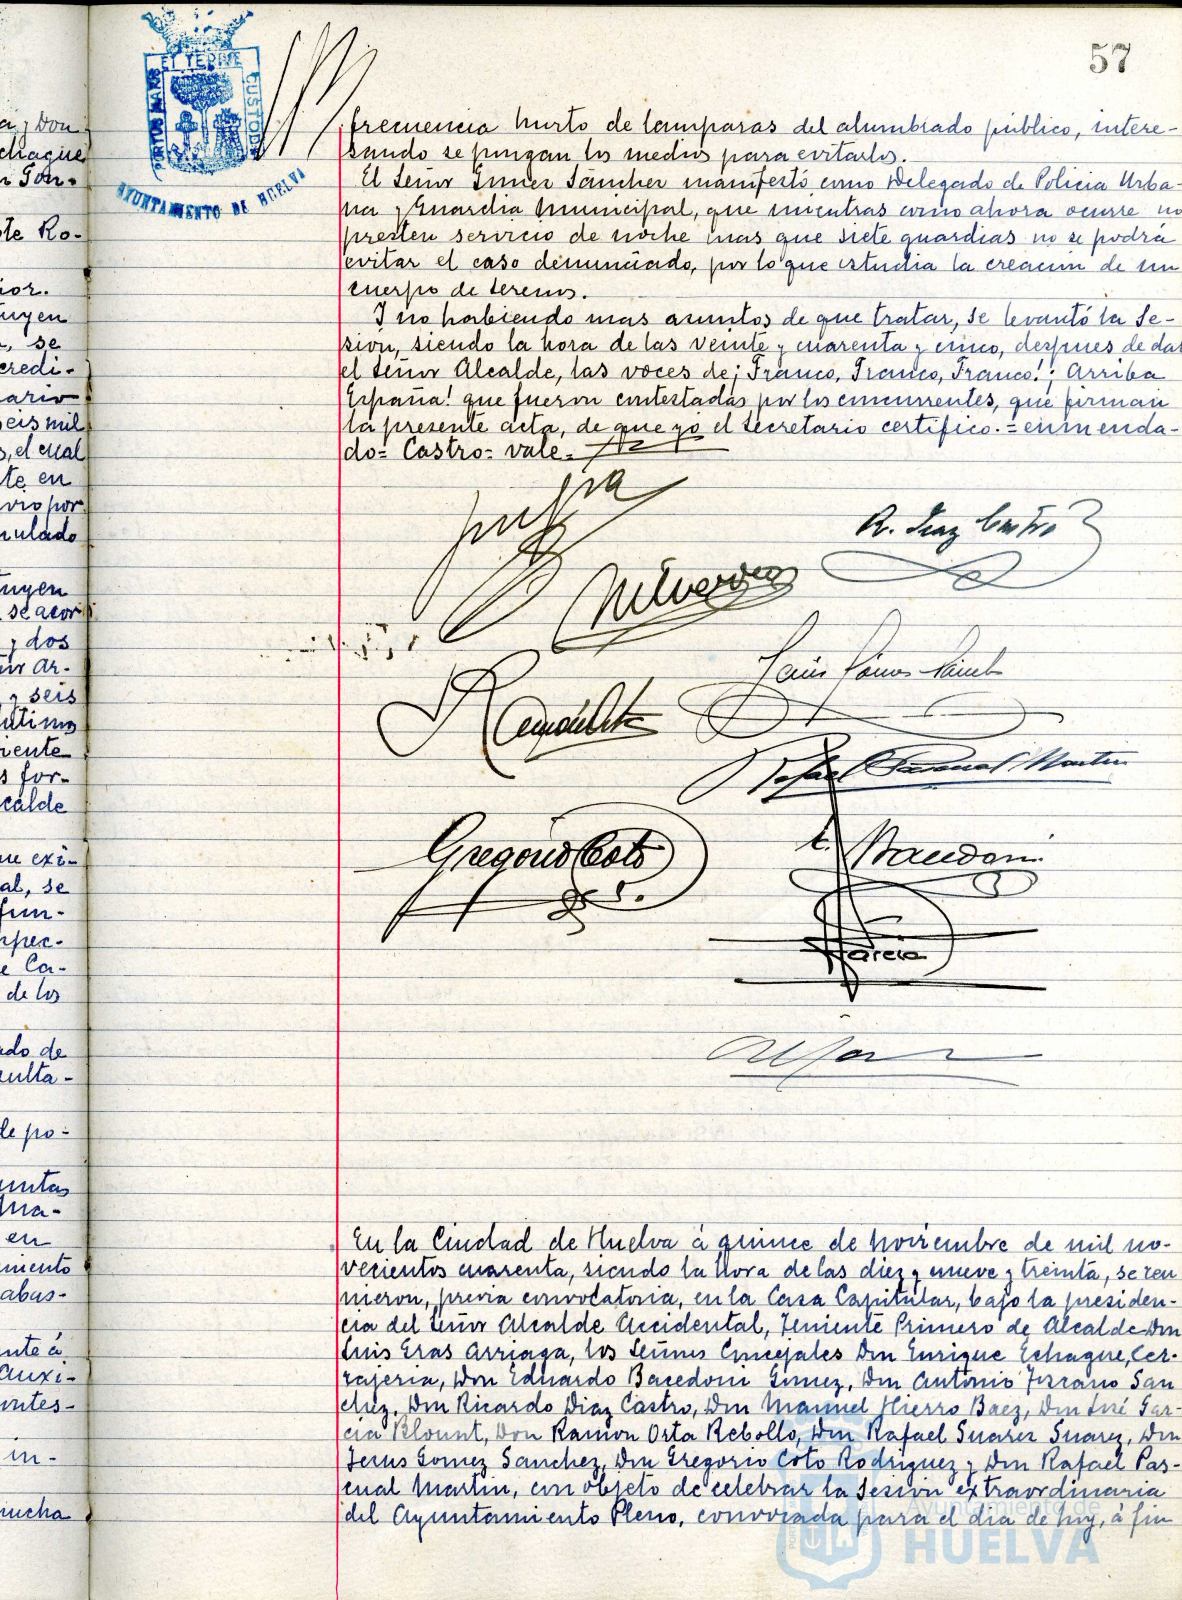 57
PORTUS MARIS ET TERRE CUSTODIA
AYUNTAMIENTO DE HUELVA
a, y Don
chague
n Gon-
te Ro-
ior.
tuyen
, se
credi-
ario
seis mil
s, el cual
te en
vio por
mulado
tuyen
se acor
y dos
ar-
y seis
riente
s for-
calde
ue exi-
al, se
fun-
spec-
e Ca-
de los
ado de
sulta-
de po-
untas
en
miento
abas-
nte á
Auxi-
ontes-
in-
mucha
frecuencia hurto de lamparas del alumbrado público, intere-
sando se pongan los medios para evitarlos.
El Señor Gomez Sánchez manifestó como Delegado de Policia Urba-
na y Guardia Municipal, que mientras como ahora ocurre no
presten servicio de noche mas que siete guardias no se podrá
evitar el caso denunciado, por lo que estudia la creación de un
cuerpo de serenos.
Y no habiendo mas asuntos de que tratar, se levantó la Se-
sión, siendo la hora de las veinte y cuarenta y cinco, despues de dar
el Señor Alcalde, las voces de ¡Franco, Franco, Franco! ¡Arriba
España! que fueron contestadas por los concurrentes, que firman
la presente acta, de que yo el Secretario certifico.=enmenda-
do= Castro= vale.=
R. Diaz Castro
Jesús Gómez Sánchez
Ramón Orta
Rafael Pascual Martin
Gregorio Coto
E. Bacedoni
Garcia
En la Ciudad de Huelva á quince de noviembre de mil no-
vecientos cuarenta, siendo la hora de las diez y nueve y treinta, se reu
nieron, previa convocatoria, en la Casa Capitular, bajo la presiden-
cia del Señor Alcalde Accidental, Teniente Primero de Alcalde Don
Luis Eras Arriaga, los Señores Concejales Don Enrique Echague, Cer-
rajeria, Don Eduardo Bacedoni Gimez, Don Antonio Toscano San
chez, Don Ricardo Diaz Castro, Don Manuel Hierro Baez, Don José Gar-
cia Blount, Don Ramon Orta Rebollo, Don Rafael Suarez Suarez, Don
Jesus Gomez Sanchez, Don Gregorio Coto Rodriguez y Don Rafael Pas-
cual Martin, con objeto de celebrar la Sesion extraordinaria
del Ayuntamiento Pleno, convocada para el dia de hoy, á fin
Ayuntamiento de
HUELVA